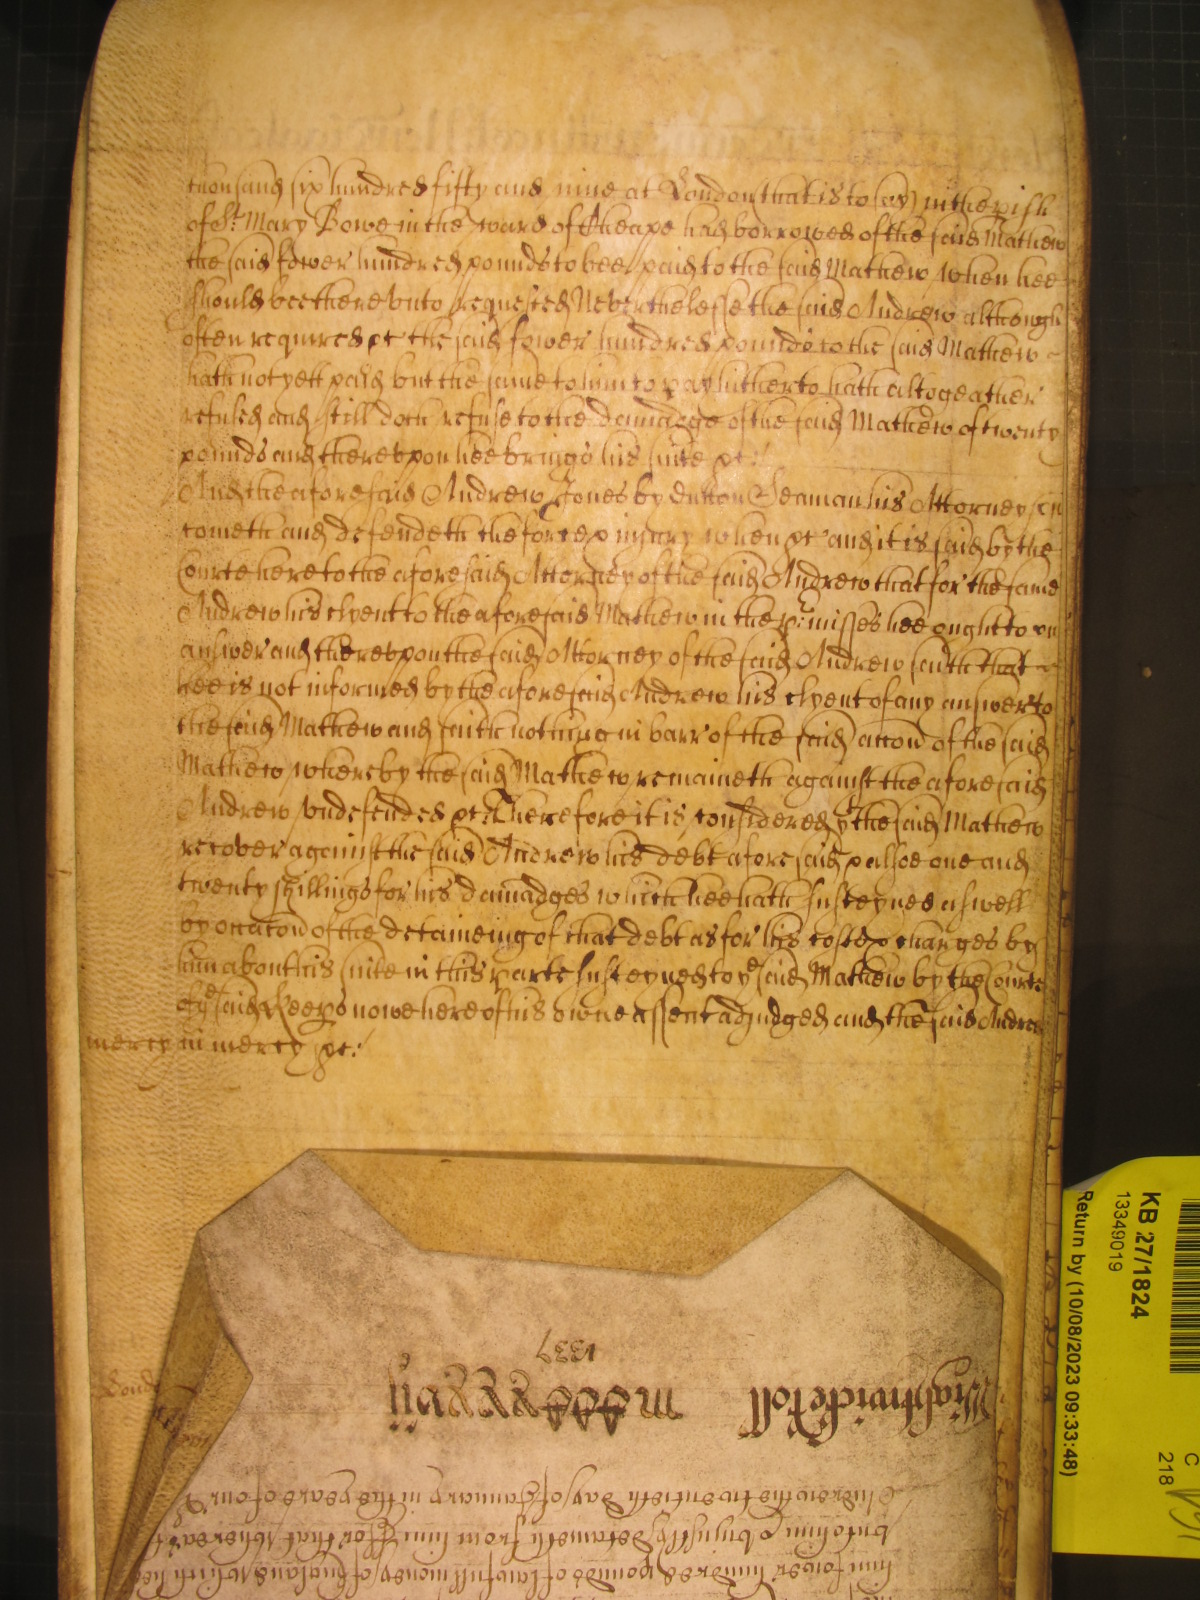 thousand six hundred fifty and nine at London that is to say in the pish
of St. Mary Bowe in the ward of Cheape had borrowed of the said Mathew
the said fower hundred pounds to bee paid to the said Mathew when hee
should bee thereunto requested Neverthelesse the said Andrew although
often required &c the said fower hundred pounds to the said Mathew
hath not yett paid but the same to him to pay hitherto hath altogeather
refused and still doth refuse to the damadge of the said Mathew of twenty
pounds and thereupon hee brings his suite &c:
And the aforesaid Andrew Jones by Dutton Seaman his Attorney
cometh and defendeth the force & injury when &c and it is said by the
Courte here to the aforesaid Attorney of the said Andrew that for the same
Andrew his clyent to the aforesaid Mathew in the p'misses hee ought to
answer and thereupon the said Attorney of the said Andrew saith that
hee is not informed by the aforesaid Andrew his clyent of any answer to
the said Mathew and saith nothing in barr of the said accon of the said
Mathew whereby the said Mathew remaineth against the aforesaid
Andrew undefended &c Therefore it is considered yt the said Mathew
recover against the said Andrew his debt aforesaid & alsoe one and
twenty shillings for his damadges which hee hath susteyned aswell
by occacon of the deteineing of that debt as for his costs & charges by
him about his suite in this parte susteyned to ye said Mathew by the Courte
of ye said Keeps nowe here of his owne assent adjudged and the said Andrew
mercy in mercy &c:
KB 27/1824
13349019
Return by (10/08/2023 09:33:48)
C
218
Londo
1337
Wightwicke Roll mccccxxxvii
Andrew the twentieth day of January in the yeare of our
unto him & unjustly deteineth from him For that whereas ye
him fower hundred pounds of lawfull money of England which hee